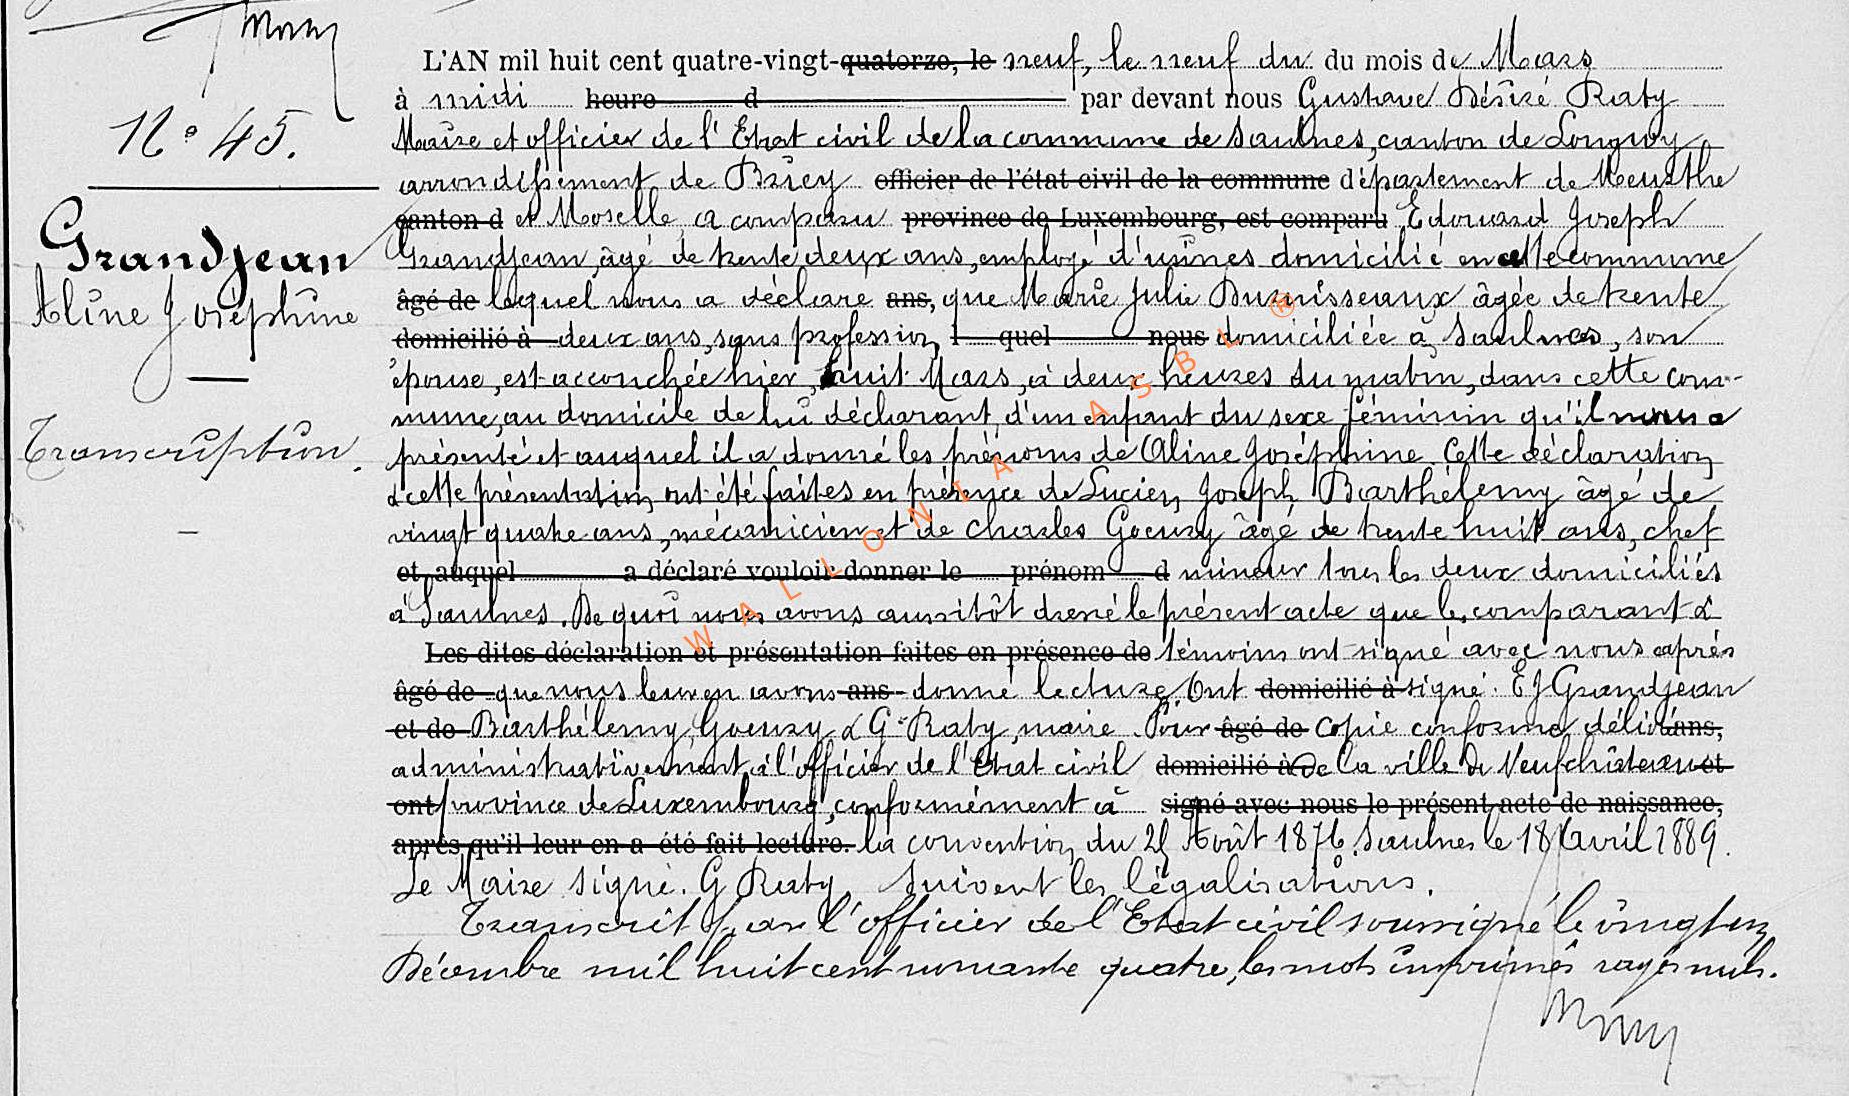 N° 45.
Grandjean
Aline Joséphine
Transcription.
L'AN mil huit cent quatre-vingt-quatorze, le neuf, le neuf du du mois de Mars
à midi heure d par devant nous Gustave Désiré Raty
Maire et officier de l'Etat civil de la commune de Saulnes, canton de Longwy
arrondissement de Briey officier de l'état civil de la commune département de Meurthe
canton d et Moselle, a comparu province de Luxembourg, est comparu Edouard Joseph
Grandjean, âgé de trente deux ans, employé d'usines domicilié en cette commune
âgé de lequel nous a déclaré ans, que Marie Julie Busnisseaux âgée de trente
domicilié à deux ans, sans profession, l quel nous domiciliée à Saulnes, son
épouse, est accouchée hier, huit Mars, à deux heures du matin, dans cette com-
mune, au domicile de lui déclarant, d'un enfant du sexe féminin qu'il nous a
présenté et auquel il a donné les prénoms de Aline Joséphine. Cette déclaration
& cette présentation ont été faites en présence de Lucien Joseph Barthélemy âgé de
vingt quatre ans, mécanicien et de Charles Goeury âgé de trente huit ans, chef
et auquel a déclaré vouloir donner le prénom d mineur tous les deux domiciliés
à Saulnes. De quoi nous avons aussitôt dressé le présent acte que le comparant &
Les dites déclaration et présentation faites en présence de témoins ont signé avec nous après
âgé de que nous leur en avons ans donné lecture, Ont domicilié à signé. E J Grandjean
et de Barthélemy, Goeury & G. Raty, maire. Pour âgé de copie conforme, délivré ans,
administrativement à l'officier de l'Etat civil domicilié à de la ville de Neufchâteau et
ont province de Luxembourg, conformément à signé avec nous le présent acte de naissance,
après qu'il leur en a été fait lecture. la convention du 25 Août 1876. Saulnes le 18 Avril 1889.
Le Maire signé. G Raty, Suivent les légalisations.
Transcrit par l'officier de l'Etat civil soussigné le vingt un
Décembre mil huit cent nonante quatre, les mots imprimés rayés nuls.
WALLONIA ASBL ®